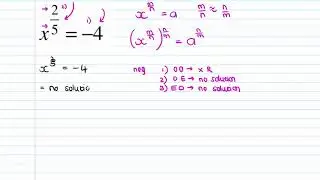 x^(2/5) = -4
→ 1)
x^(m/n) = a m/n ≈ n/m
(x^(m/n))^(n/m) = a^(n/m)
x^(2/5) = -4
= no soluti
neg 1) OO → x R
2) OE → no solution
3) EO → no solution